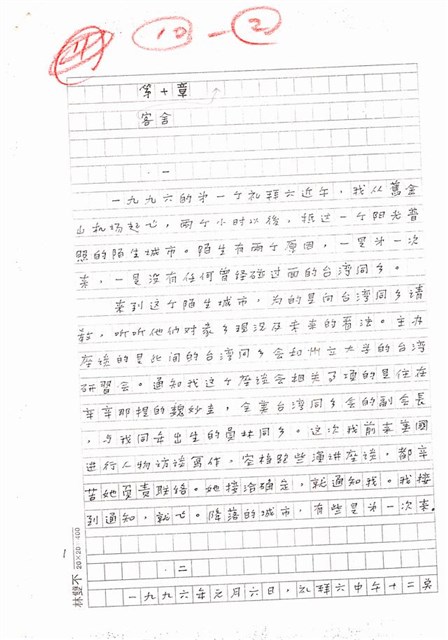 10 - 2
第十章
客舍
一
一九九六的第一个礼拜六近午,我从舊金
山机场起飞,两个小时以後,抵达一个阳光普
照的陌生城市。陌生有两个原因,一是第一次
来,一是沒有任何曾经碰过面的台湾同乡。
来到这个陌生城市,为的是向台湾同乡请
教,听听他们对家乡現况及未来的看法。主办
座谈的是此间的台湾同乡会和州立大学的台湾
研習会。通知我这个座谈会相关事项的是住在
辛辛那提的魏妙圭,全美台湾同乡会的副会長
,与我同年出生的員林同乡。这次我前来美國
进行人物访谈写作,穿插那些演讲座谈,都辛
苦她負责联络。她接洽确定,就通知我。我接
到通知,就飞。降落的城市,有些是第一次来。
二
一九九六年元月六日,礼拜六中午十二
1
林雙不 20×20=400